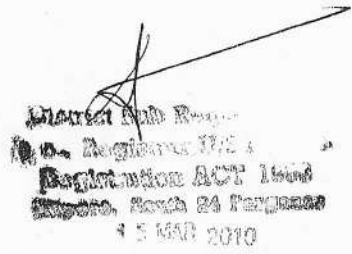 District Sub Reg
Registrar U/S
Registration ACT 1908
Alipore, South 24 Parganas
15 MAR 2010